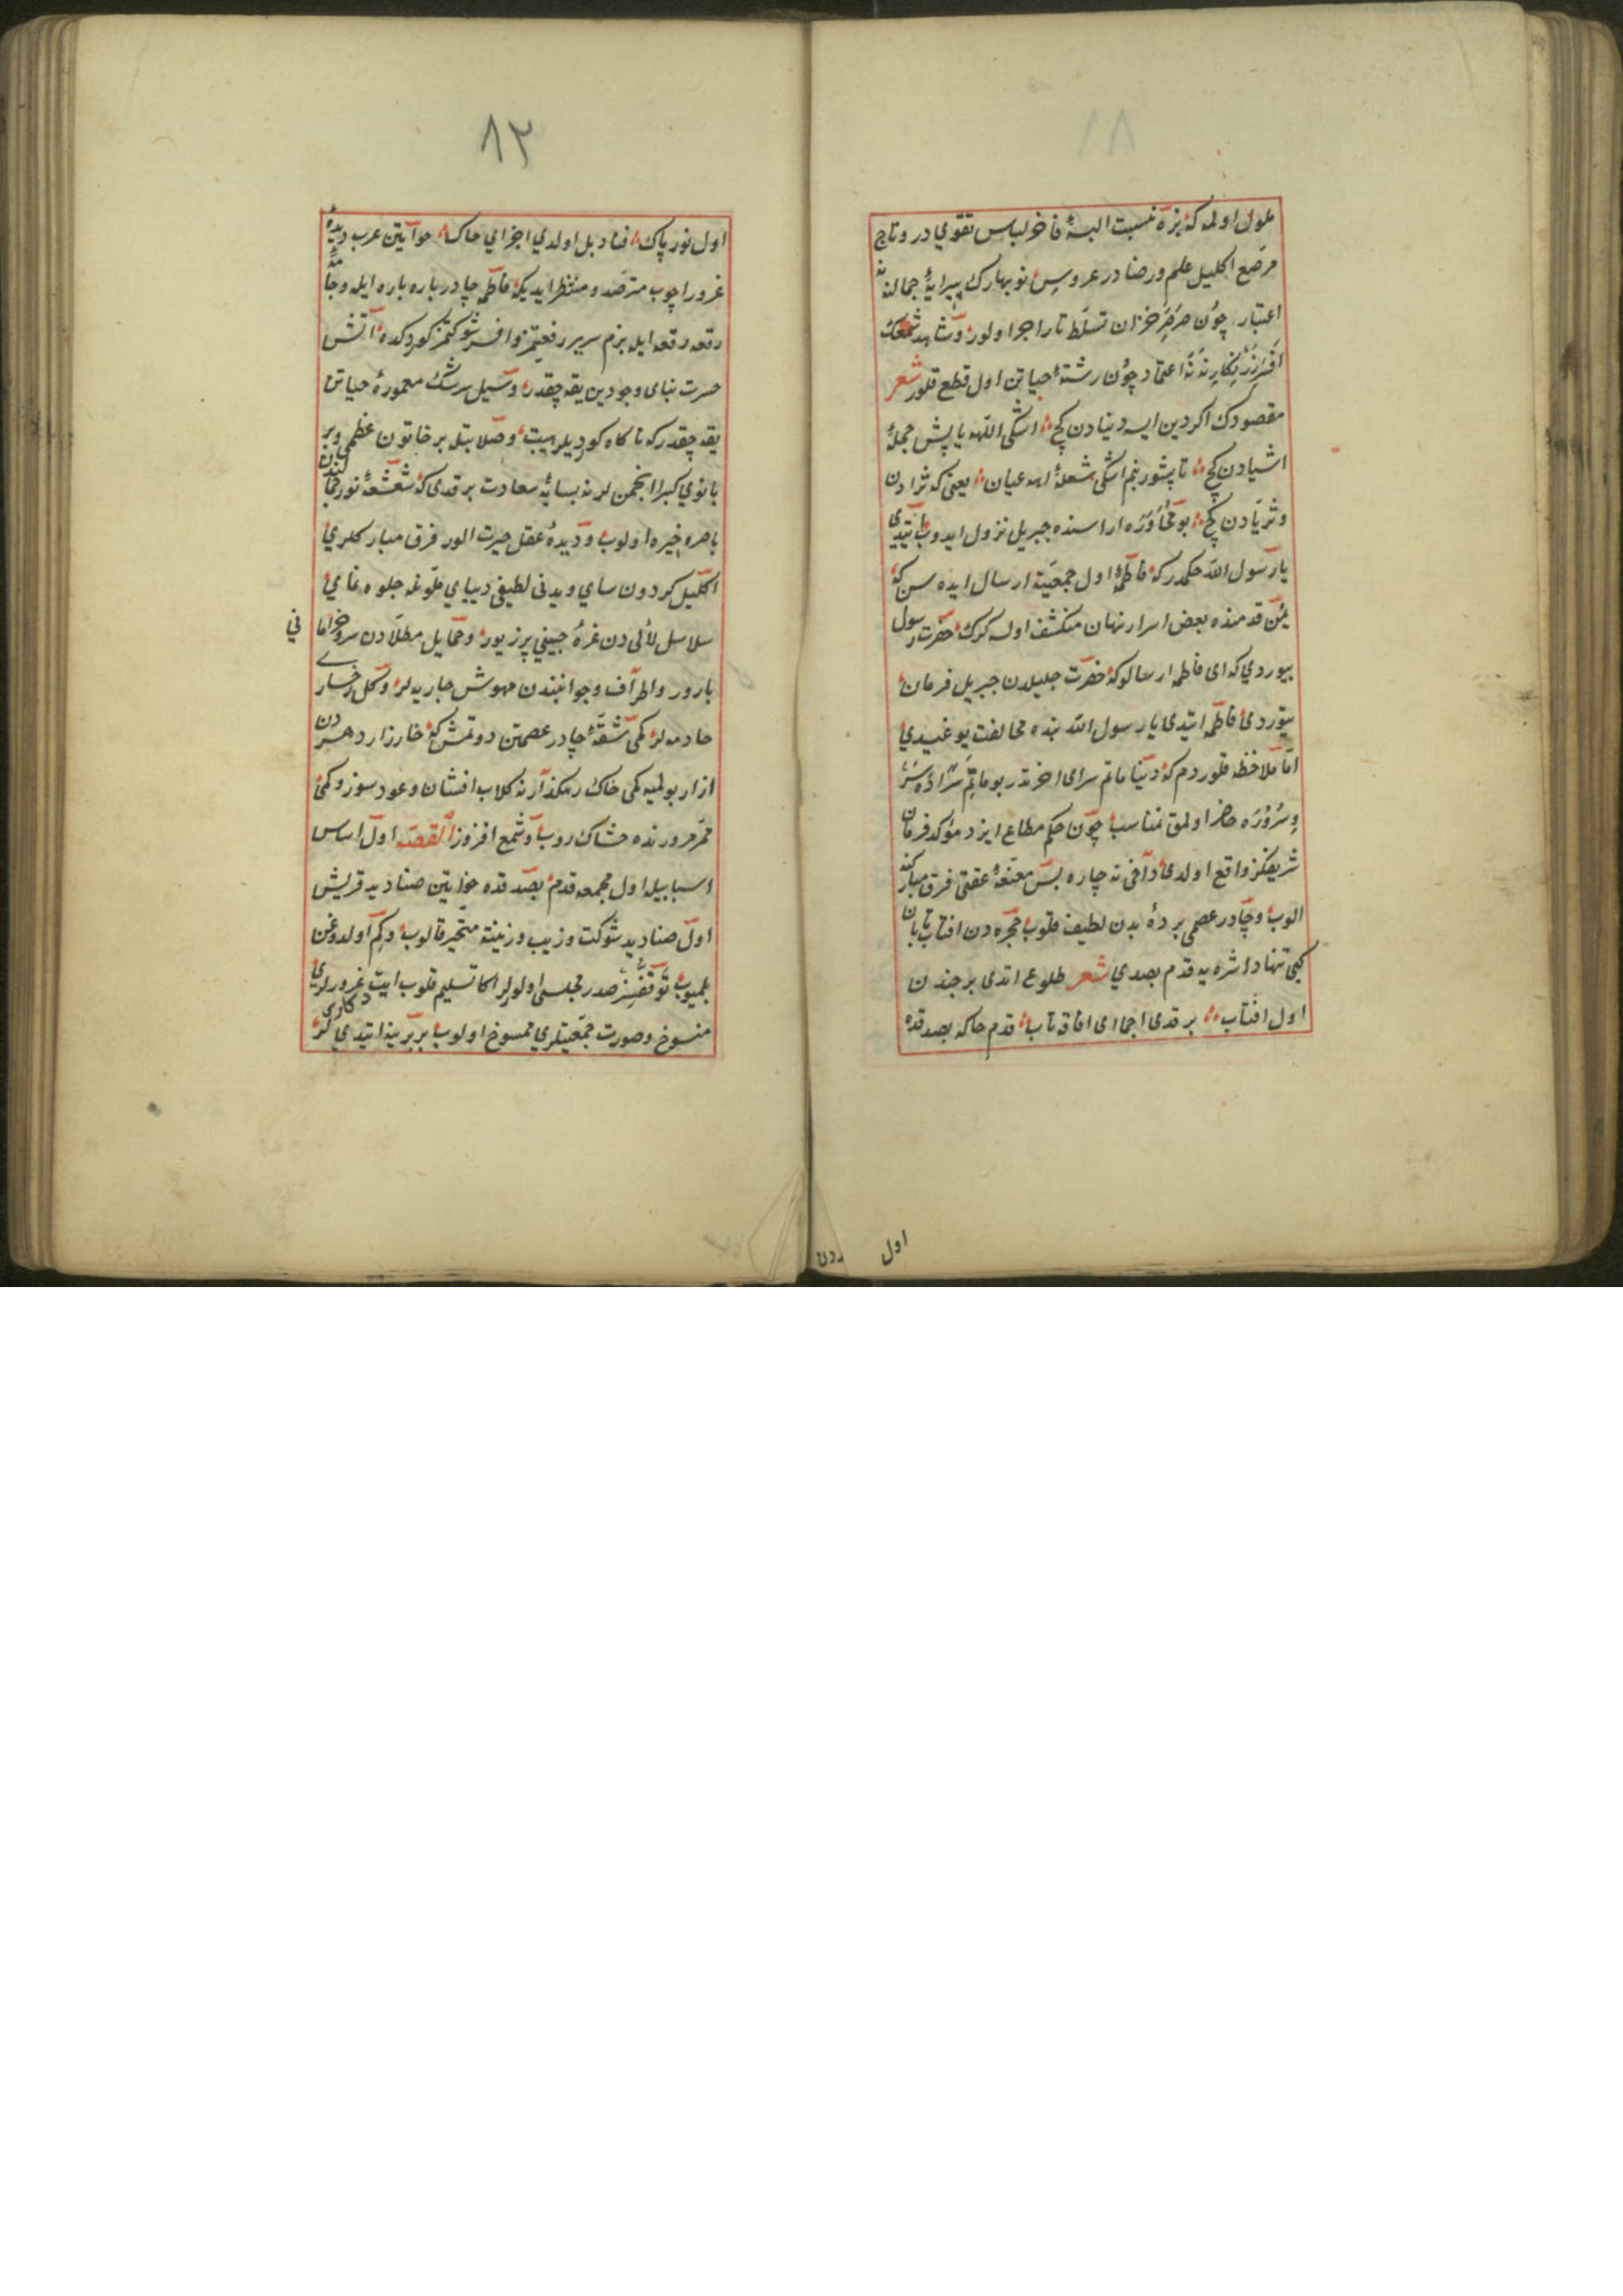 ملول اولمه كه بزه نسبت البسهٔ فاخر لباس تقوي در و تاج
مرصع اكليل علم و رضا در عروس نو بهارك پيرايهٔ جمالنه نه
اعتبار چون صرصر خزان تسلط تاراجرا اولور و شاهد شمعك
افسر زرنكارينه نه اعتماد چون رشتهٔ حياتن اول قطع قلور شعر
مقصودك اكر دين ايسه دنيادن كچ اشكى اللهه ياپيش جملهٔ
اشيادن كچ تا پشور بنم اشكى شعلهٔ اهه عيان يعنى كه ثرادن
و ثريادن كچ بو محاوره اراسنده جبريل نزول ايدوب ايتدى
يا رسول الله حكمدر كه فاطمهٔ اول جمعيته ارسال ايده سن كه
يمن قدمنده بعض اسرار نهان منكشف اولسه كرك حضرت رسول
بيوردي كه اى فاطمه ارسالوكه حضرت جليلدن جبريل فرمان
يتوردى فاطمه ايتدى يا رسول الله بنده مخالفت يوغيدي
اما ملاحظه قلوردم كه دنيا ماتم سراى اخرتدر بو ماتم سراده سر
و سروره حاضر اولمق نمناسب چون حكم مطاع ايزد مؤكد فرمان
شريفكز واقع اولدى دآخى نه چاره بس مقنعهٔ عفتى فرق مباركنه
الوب و چادر عصمى بردهٔ بدن لطيف قلوب حجره دن افتاب تابان
كبى تنها داشره يه قدم بصدي شعر طلوع اتدى برجندن
اول افتاب بر قدى اجماى افاقه تاب قدم خاكه بصدقده
اول
اول نور پاك افتاد بل اولدي اجزاي خاك خواتين عرب ديدهٔ
غرور اچوب مترصد و منتظر ايديكه فاطمه چادر باره باره ايله و جامهٔ
رقعه رقعه ايله بزم سرير رفعتمز و افسر شوكتمز كوردكده آتش
حسرت بناى وجودين يقه چقدر و سيل سرشك معمورهٔ حياتن
يقه چقدر كه ناكاه كورديلر هيبت و صلابتله بر خاتون عظمى و بر
بانوي كبرا انجمن لرنه بسايهٔ سعادت برقدى كه شعشعهٔ نور جمالندن
باصره خيره اولوب و ديدهٔ عقل حيرت الور فرق مباركلري
اكليل كردون ساي و بدنى لطيفى ديباي ملونله جلوه نماي
سلاسل لألى دن غرهٔ جبيني پر زيور و حمايل مطلادن سرو خراما ني
بارور و اطراف و جوانبندن مهوش جاريه لر و كل رخسار
خادمه لر كمى شقهٔ چادر عصمتن دوتمش كه خارزار دهردن
ازار بولميه كمى خاك رهكذارنه كلاب افشان و عود سوز و كمى
ممر مرورنده خشاك روب و شمع افروز القصه اول اساس
اسبابيله اول مجمعه قدم بصدقده خواتين صناديد قريش
اول صناديد شوكت و زيب و زينته متحير قالوب و كم اولدوغن
بلميوب توقفسز صدر مجلسى اولولر اكا تسليم قلوب ايت غرورلري
منسوخ و صورت جمعيتلري ممسوخ اولوب بربرينه ايتدي لر
٨٢